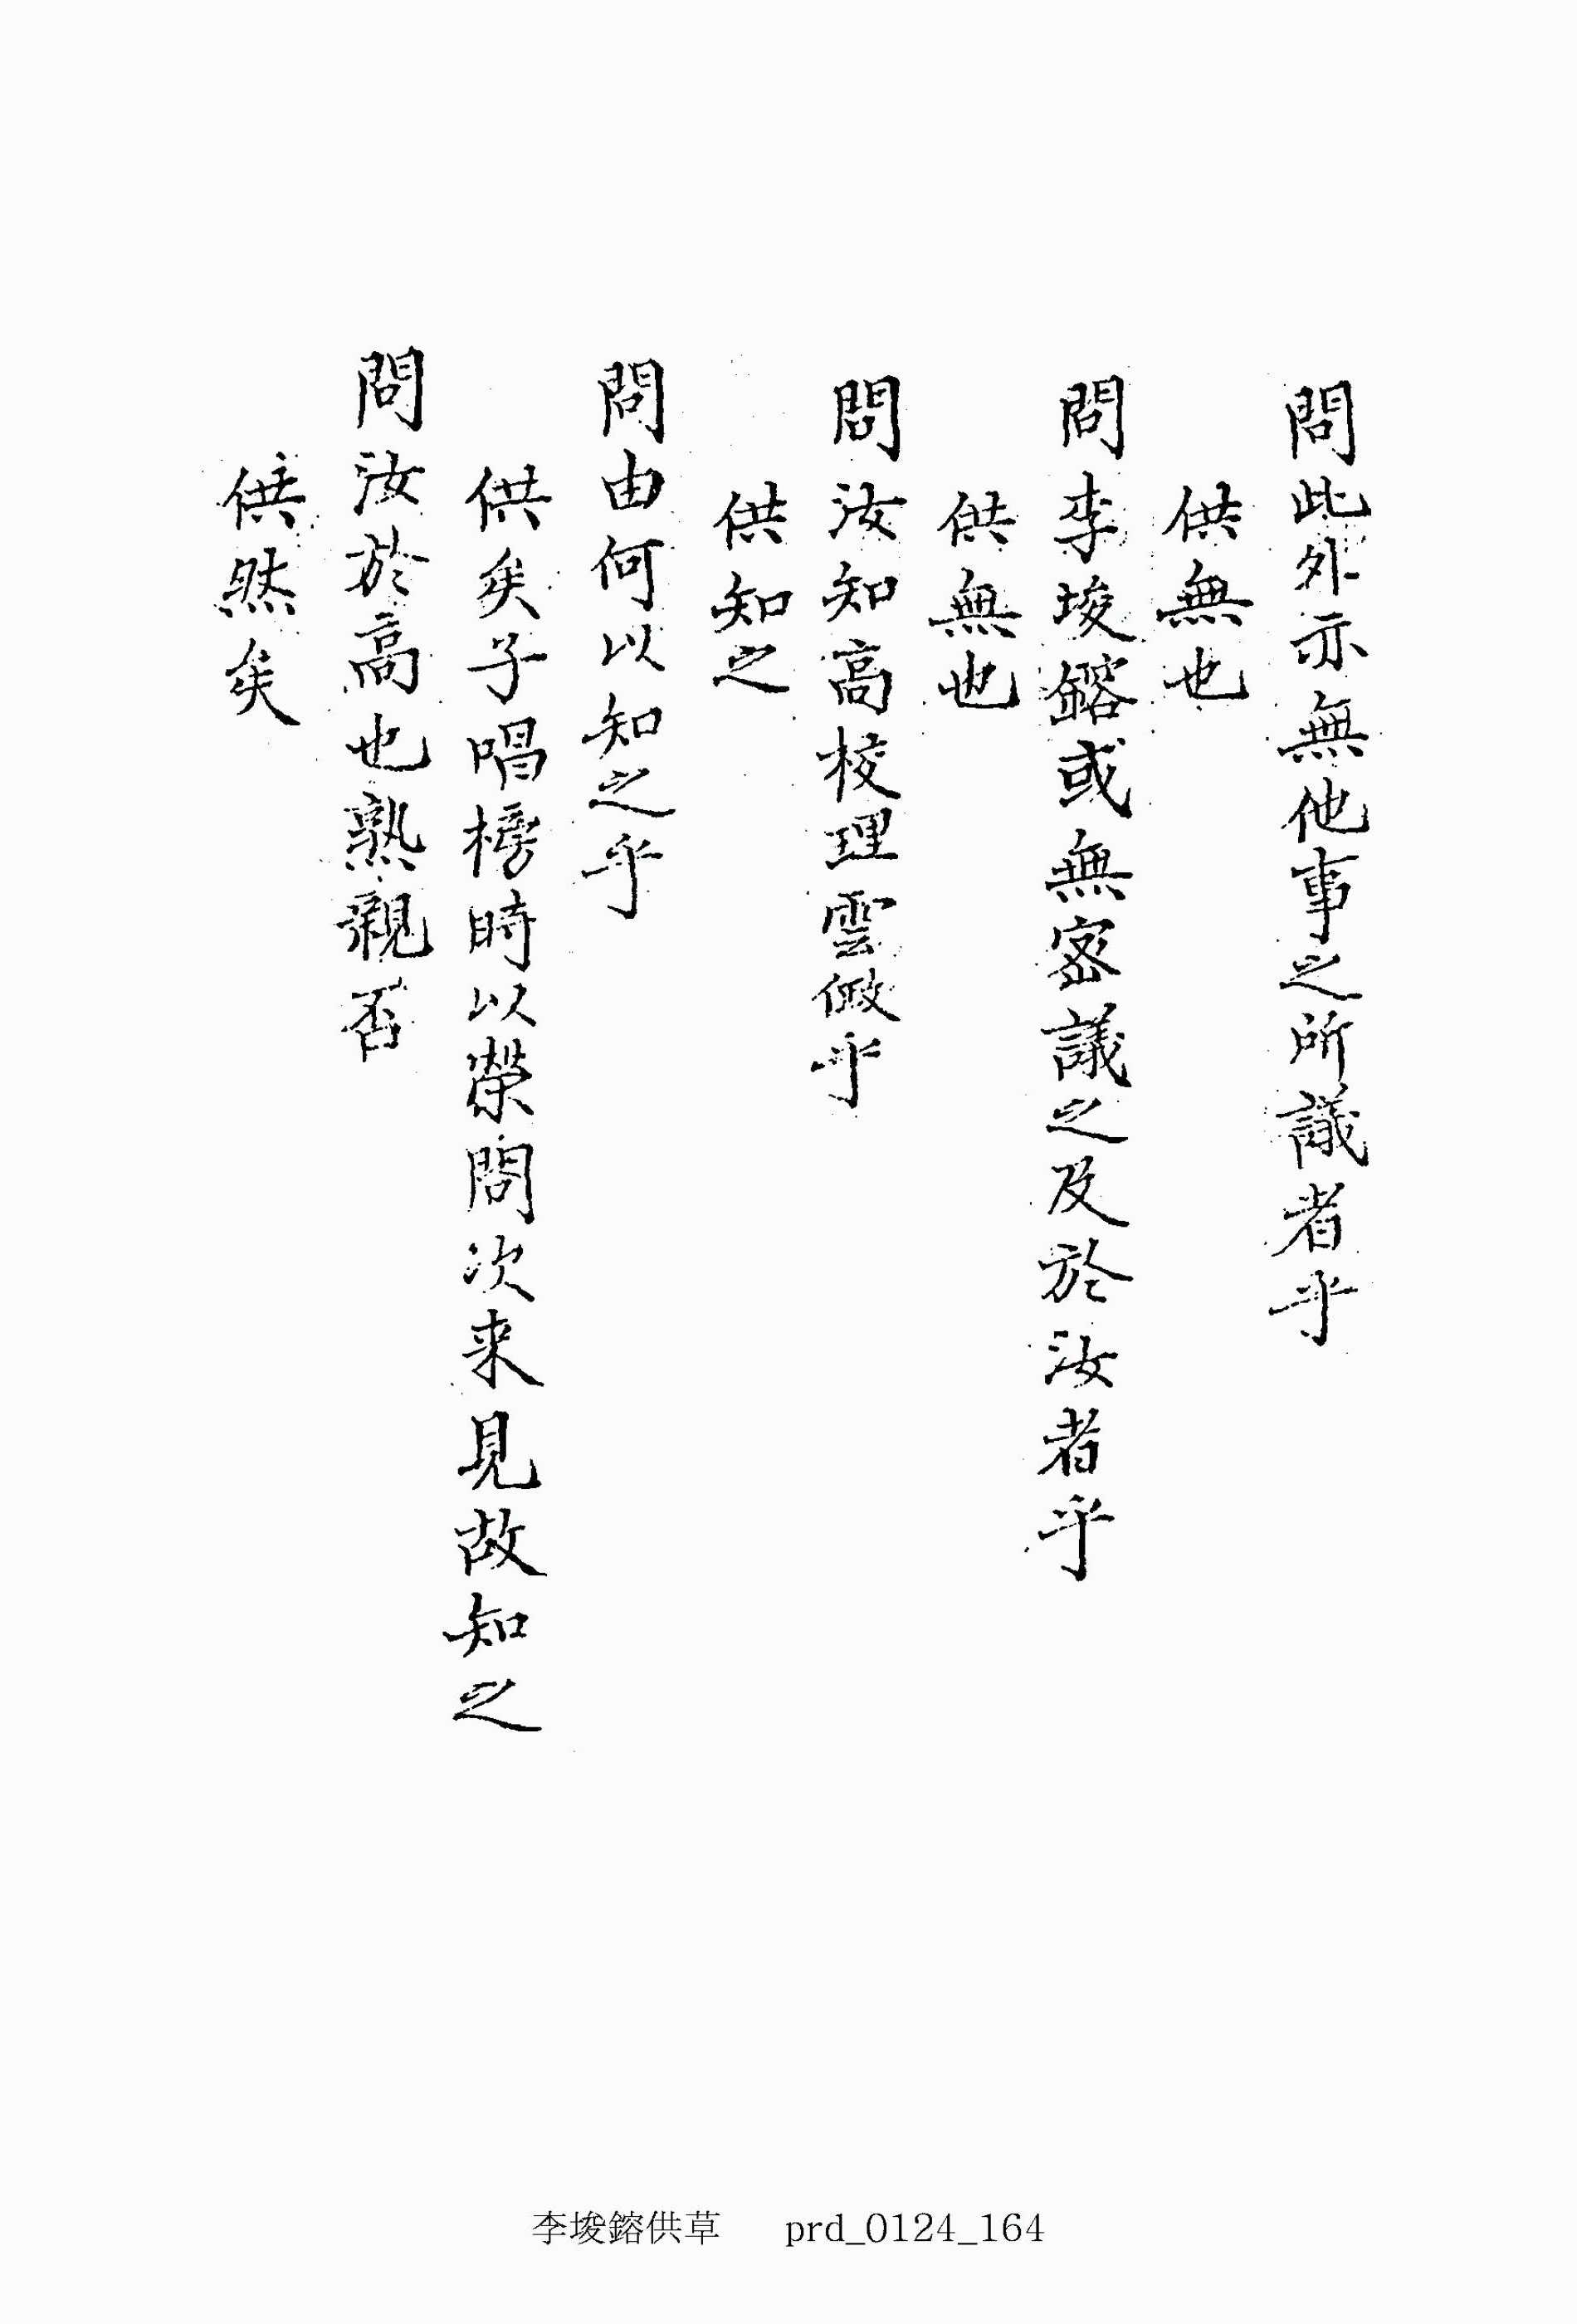 問此外亦無他事之所議者乎
供無也
問李埈鎔或無密議之及於汝者乎
供無也
問汝知高校理雲儆乎
供知之
問由何以知之乎
供矣子唱榜時以榮問次来見故知之
問汝於高也熟親否
供然矣
李埈鎔供草 prd_0124_164